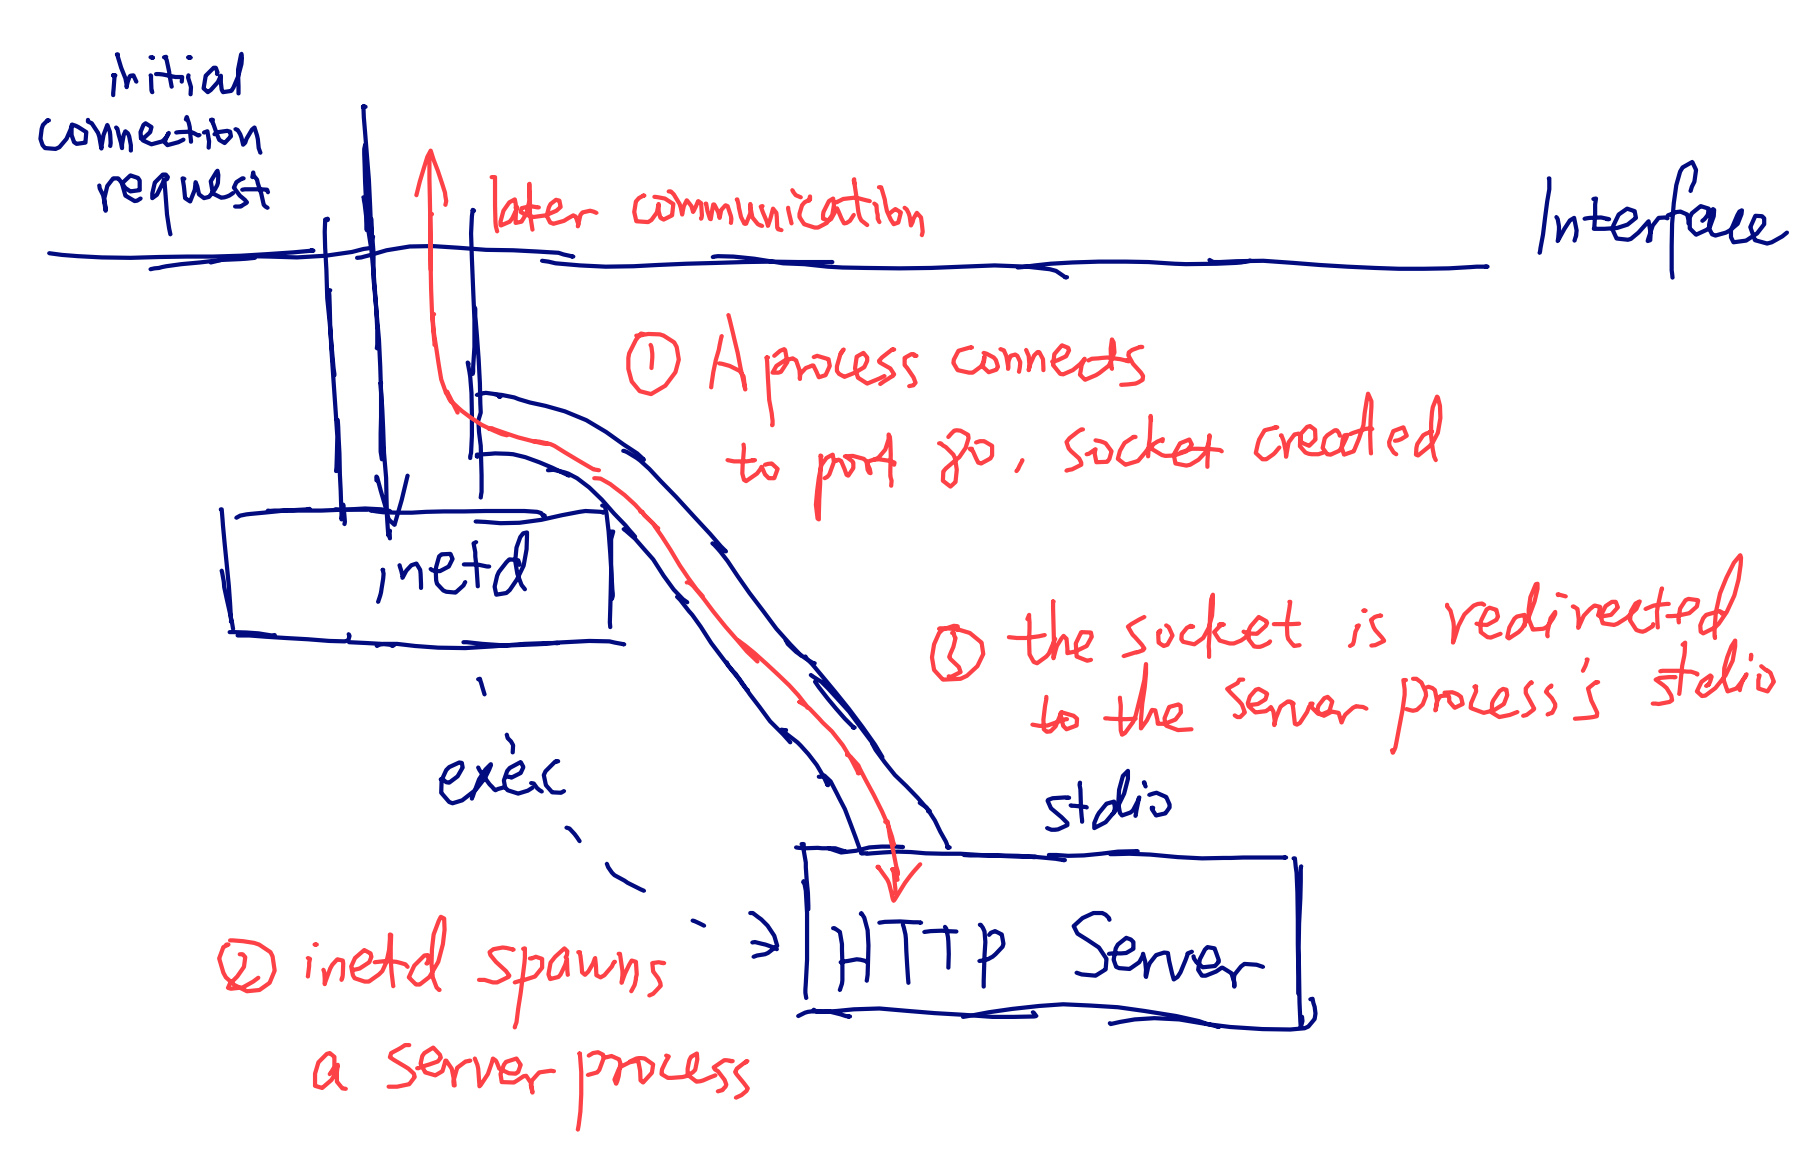 initial
connection
request
later communication
Interface
① A process connects
to port 80, socket created
inetd
③ the socket is redirected
to the server process's stdio
exec
stdio
HTTP Server
② inetd spawns
a server process